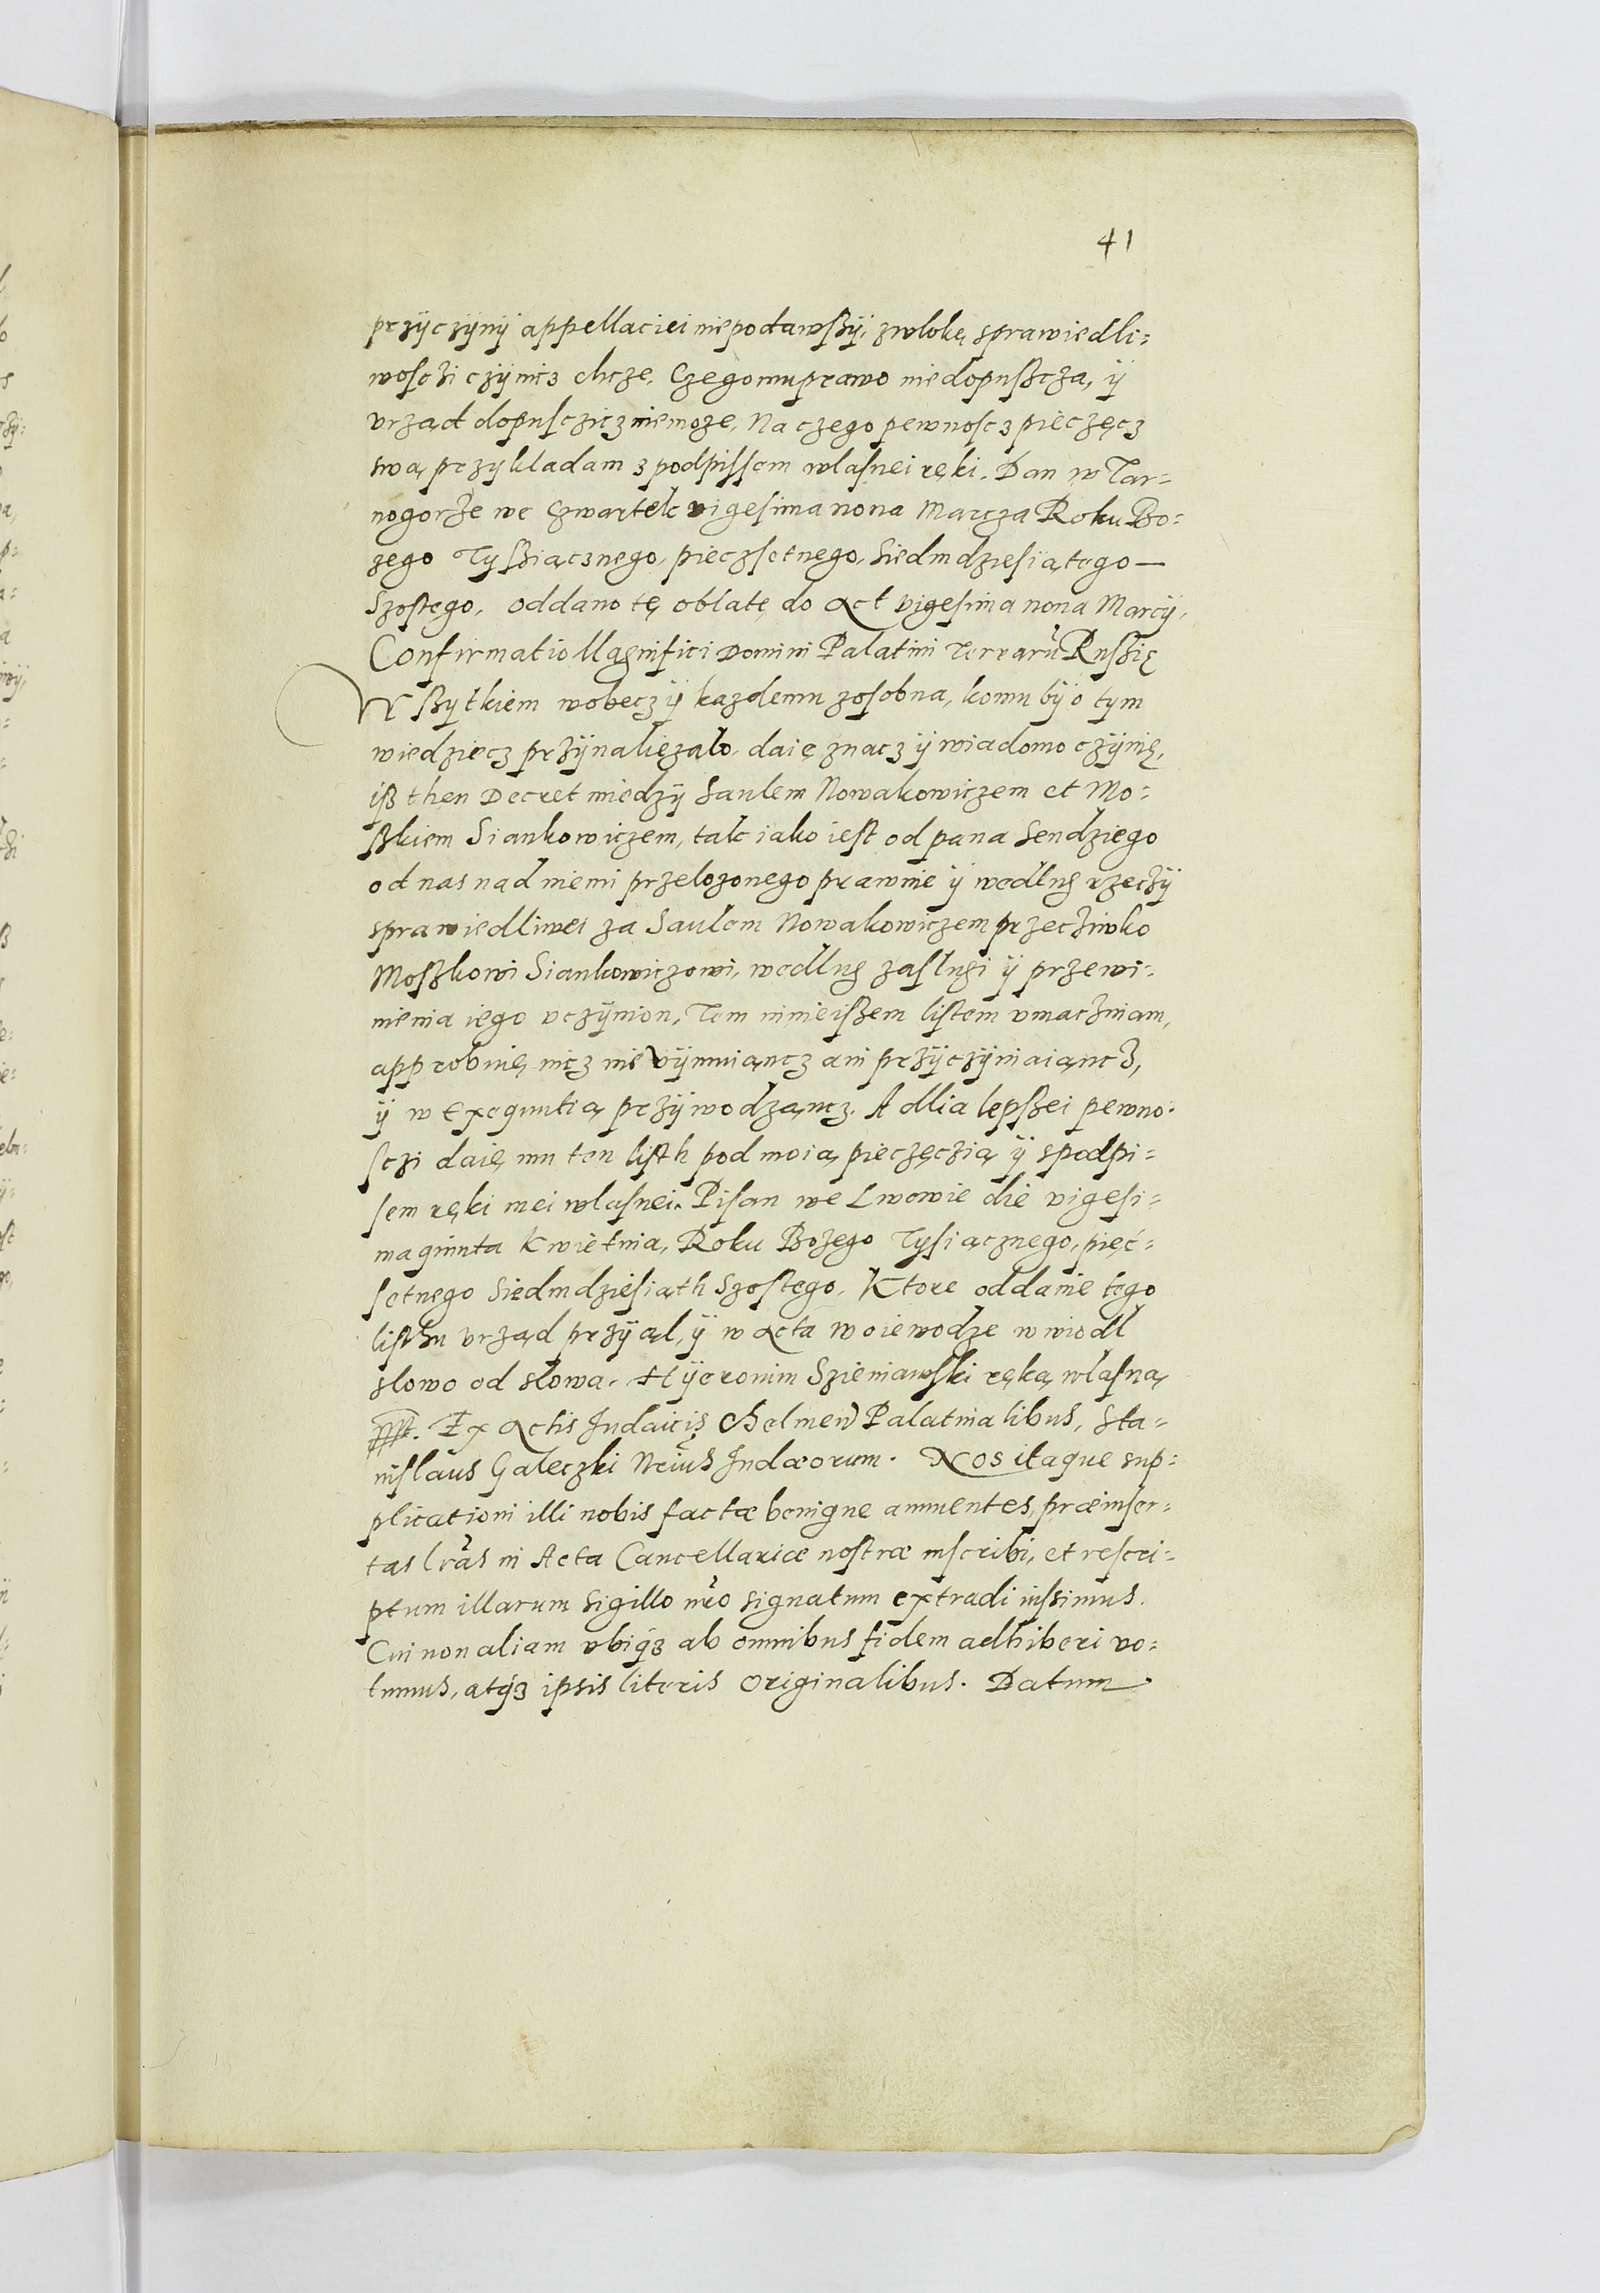 41
przÿczÿnÿ appellaciei niepodawſßÿ, zwlokę sprawiedli=
woſczi czÿnicz chcze, Czegomu prawo niedopuſzcza, ÿ
vrząd dopuſczicz niemoze, Na czego pewnoscz pieczęcz
swą przykladam z podpiſsem wlaſnei ręki. Dan w Tar=
nogorze we Czwartek vigesima nona Marcza Roku Bo=
zego Tyſsiącznego, pieczsetnego, Siedmdziesiątego —
Szoſtego, oddano tę oblatę do Act vigesima nona Marcÿ,
Confirmatio Magnifici Domini Palatini Terrarũ Ruſsię
Wſßytkiem wobecz ÿ kazdemu zosobna, komu bÿ o tym
wiedziecz przÿnalięzalo, daię znacz ÿ wiadomo czÿnię,
iß then Decret miedzÿ Saulem Nowakowiczem et Mo=
ſzkiem Siankowiczem, tak iako ieſt od pana Sendziego
od nas nad niemi przelozonego prawnie ÿ wedlug rzeczÿ
sprawiedliwei za Saulem Nowakowiczem przecziwko
Moſzkowi Siankowiczowi, wedlug zaſlugi ÿ przewi=
nienia iego vczÿnion, Tem ninieiſzem liſtem vmacziniam,
approbuię nicz nie vÿmuiąncz ani przÿczÿniaiąncz,
ÿ w Exequutią przÿwodząncz. A dlia lepſzei pewno=
ſczi daię mu ten liſth pod moią pieczęczią ÿ spodpi=
sem ręki mei wlaſnei. Pisan we Lwowie die vigesi=
maquinta Kwietnia, Roku Bożego Tysiącznego, pięć=
ſetnego Siedmdziesiąth Szoſtego, Ktore oddanie tego
liſthu vrząd przÿąl, ÿ w Acta woiewodze wwiodl
slowo od slowa. Hÿeronim Szieniawſki ręką wlaſną
ppſt. Ex Actis Judaicis Belzmeñ Palatinalibus, Sta=
niſlaus Galeczki Nriús Judæorum. Nos itaque sup=
plicationi illi nobis factæ benigne annuentes, præinser=
tas lr̃as in Acta Cancellariæ nostræ inscribi, et rescri=
ptum illarum sigillo nr̃o signatum extradi iuſsimus.
Cui non aliam vbiq́ʒ ab omnibus fidem adhiberi vo=
lumus, atq́ʒ ipsis literis originalibus. Datum